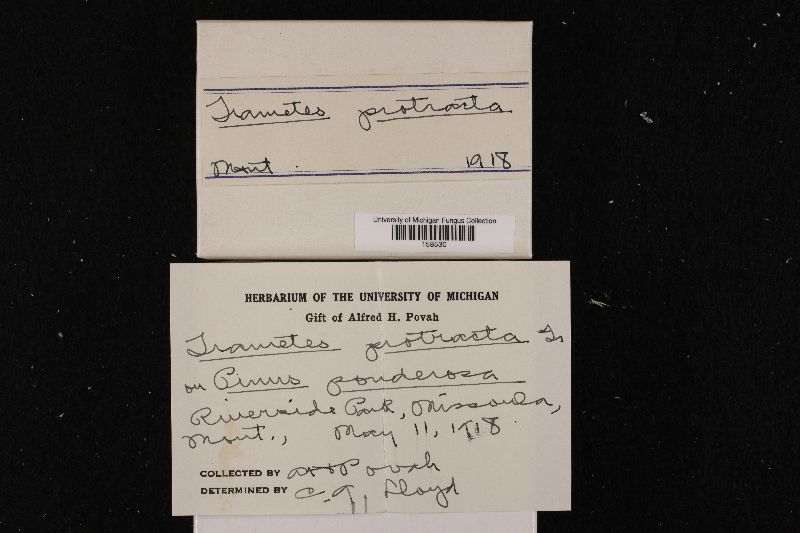 Trametes protracta
Mont. 1918
University of Michigan Fungus Collection
158530
HERBARIUM OF THE UNIVERSITY OF MICHIGAN
Gift of Alfred H. Povah
Trametes protracta Fr
on Pinus ponderosa
Riverside Park, Missoula,
Mont., May 11, 1918.
COLLECTED BY AHPovah
DETERMINED BY C.G. Lloyd